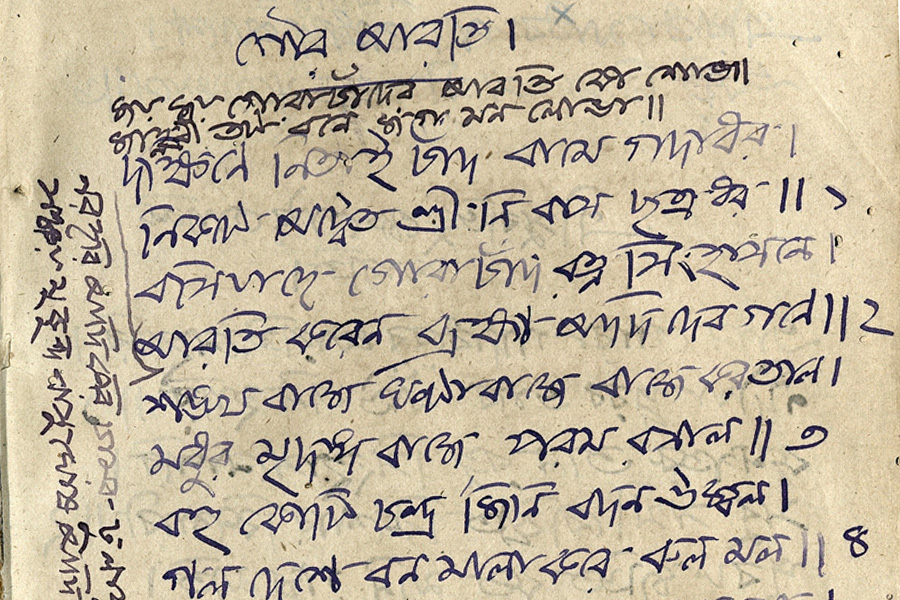 গৌর আরতি।
জয় জয় গোরাচাঁদের আরতি কো শোভা।
জাহ্নবী তট বনে জগ মন লোভা॥
দক্ষিনে নিতাই চাঁদ বামে গদাধর।
নিকটে অদ্বৈত শ্রীনিবাস ছত্র ধর॥ ১
বসিয়াছে গোরাচাঁদ রত্ন সিংহাসনে।
আরতি করেন ব্রহ্মা আদি দেব গনে॥ ২
শঙ্খ বাজে ঘন্টা বাজে বাজে করতাল।
মধুর মৃদঙ্গ বাজে পরম রসাল॥ ৩
বহু কোটি চন্দ্র জিনি বদন উজ্জ্বল।
গল দেশে বন মালা করে ঝল মল॥ ৪